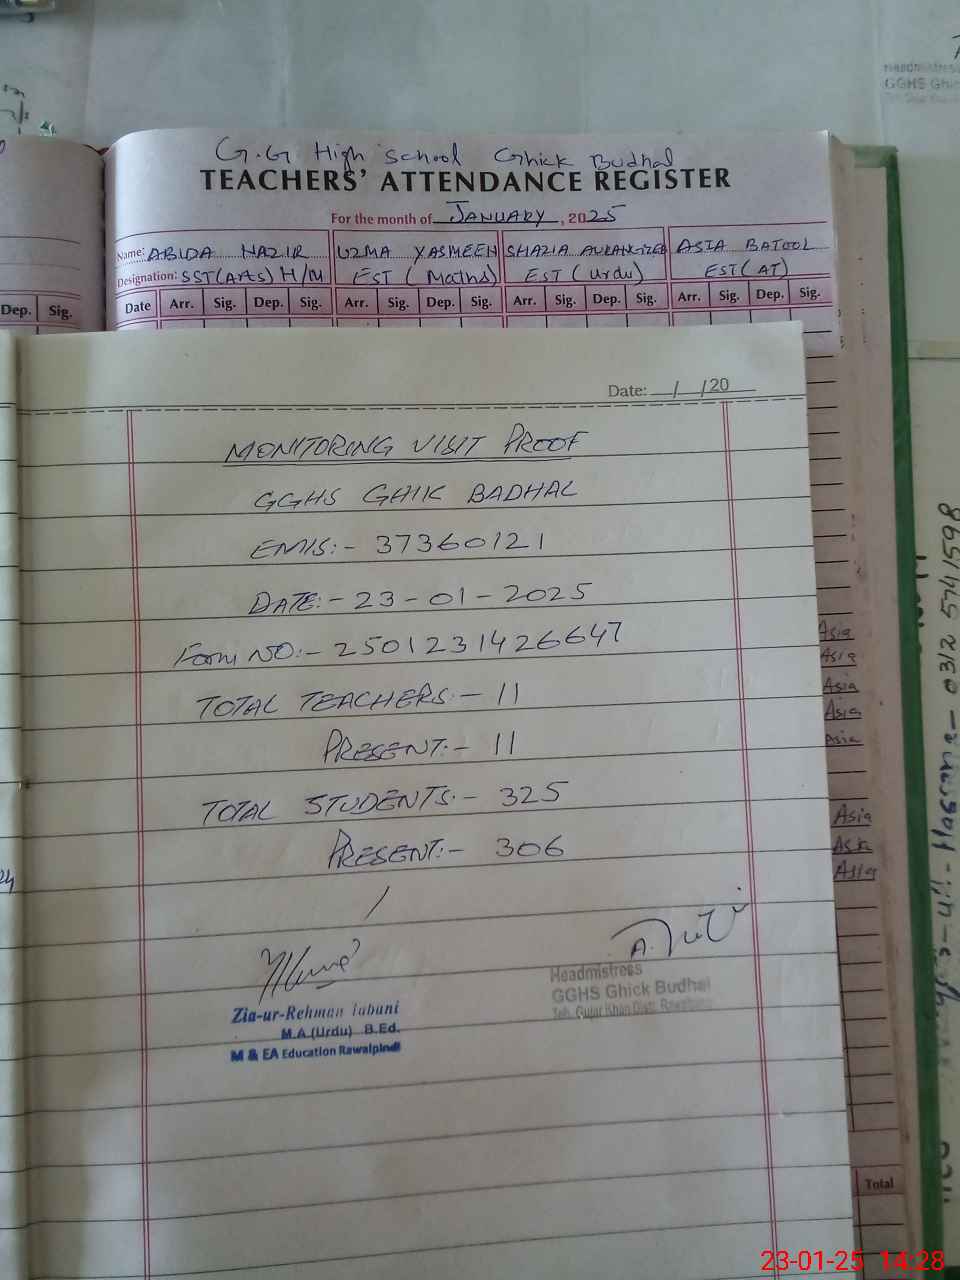 Headmistress
GGHS Ghick
G.G High School Ghick Budhal
TEACHERS' ATTENDANCE REGISTER
For the month of JANUARY, 2025
Name: ABIDA NAZIR UZMA YASMEEN SHAZIA AURANGZEB ASIA BATOOL
Designation: SST(Arts) H/M EST (Maths) EST (Urdu) EST (AT)
Dep. Sig. Date Arr. Sig. Dep. Sig. Arr. Sig. Dep. Sig. Arr. Sig. Dep. Sig. Arr. Sig. Dep. Sig.
Date: / /20
MONITORING VISIT PROOF
GGHS GHIK BADHAL
EMIS:- 37360121
DATE:- 23-01-2025
Form NO:- 2501231426647
TOTAL TEACHERS:- 11
PRESENT:- 11
TOTAL STUDENTS:- 325
PRESENT:- 306
Asia
Asia
Asia
Asia
Asia
Asia
Asia
Asia
Headmistress
GGHS Ghick Budhal
Teh. Gujar Khan Distt. Rawalpindi
Zia-ur-Rehman Tabani
M.A.(Urdu) B.Ed.
M & EA Education Rawalpindi
0312 5741598
Total
23-01-25 14:28